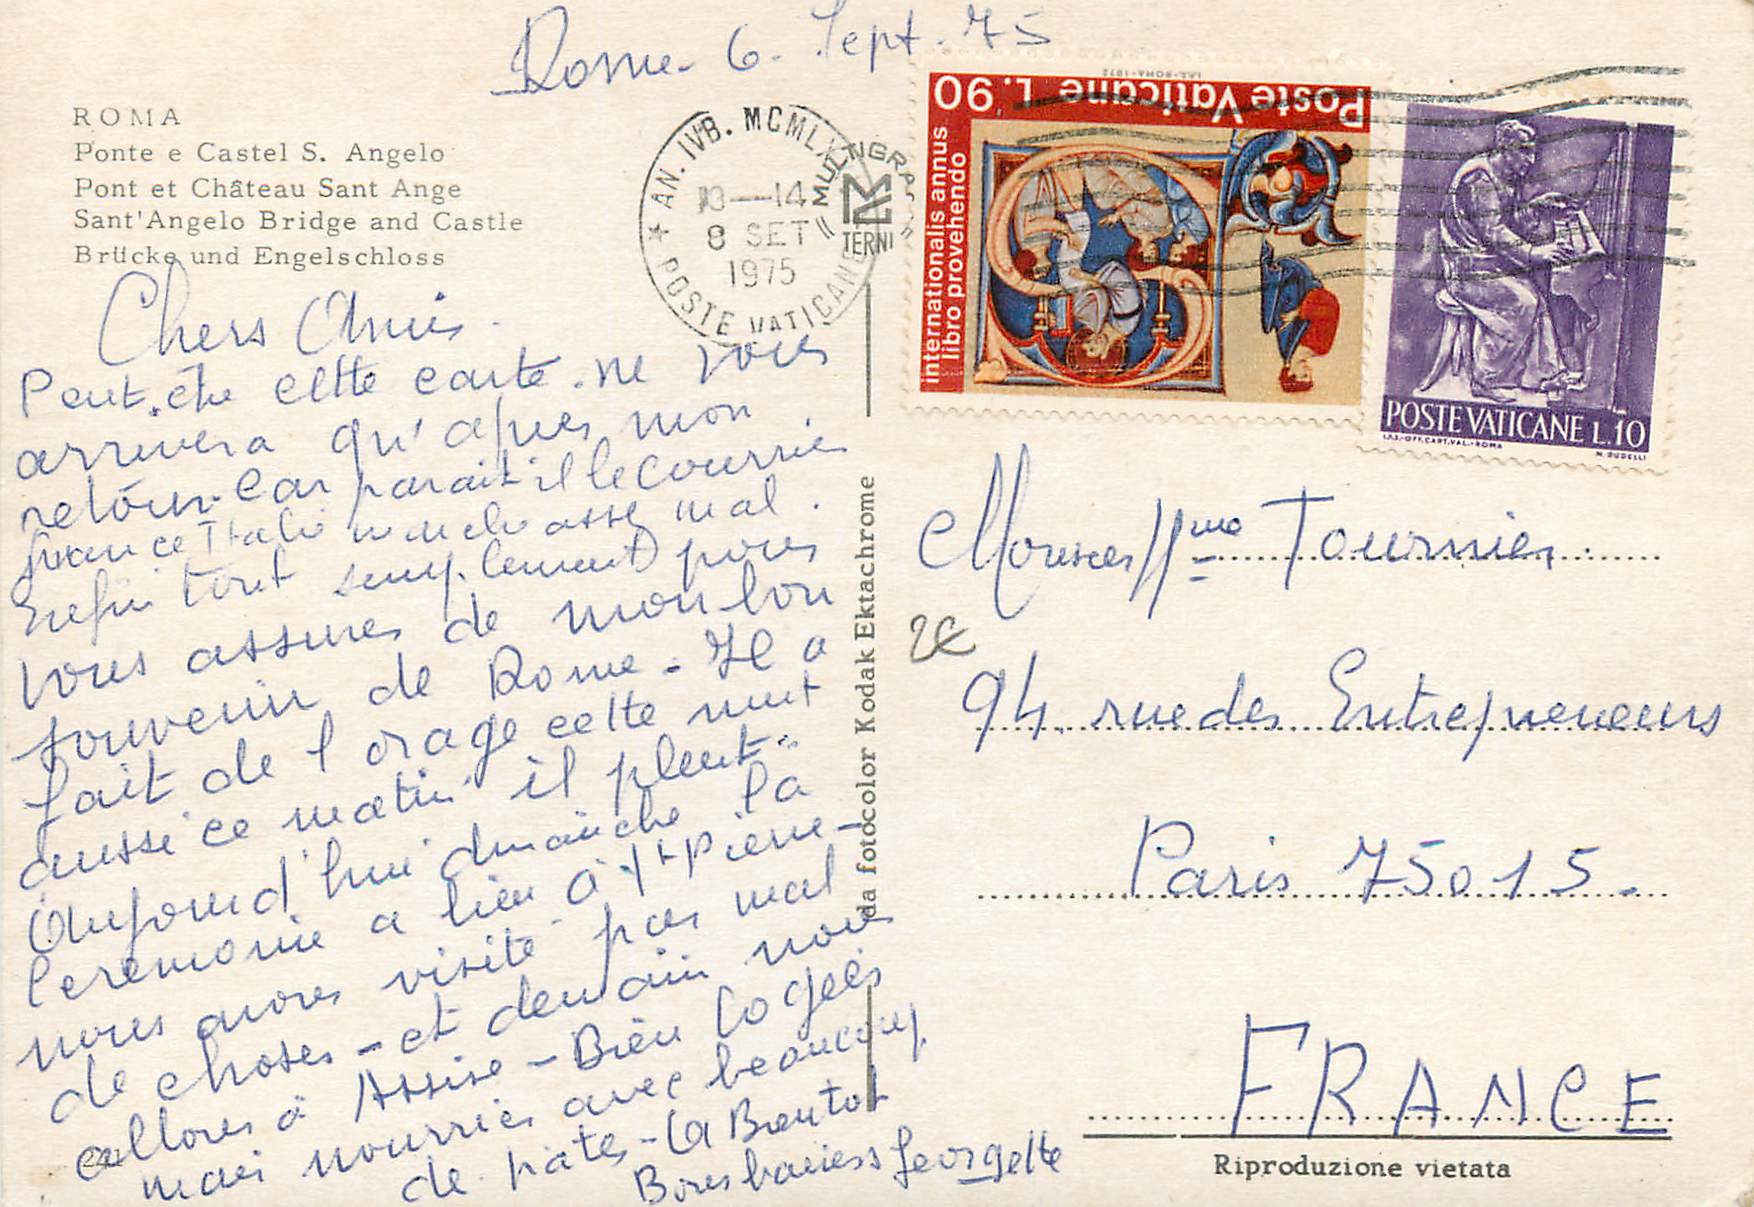 Rome 6. Sept. 75
ROMA
Ponte e Castel S. Angelo
Pont et Château Sant Ange
Sant'Angelo Bridge and Castle
Brücke und Engelschloss
AN. IVB. MCMLX
10—14
8 SET
1975
POSTE VATICANE
TERNI
Poste Vaticane L.90
internationalis annus
libro provehendo
I.P.S.-ROMA-1972
POSTE VATICANE L.10
I.P.S.-OFF.CART.VAL.-ROMA
Chers Amis.
Peut.être cette carte ne vous
arrivera qu'après mon
retour. Car parait il le courrier
france Italie marche assez mal.
Enfin tout simplement pour
vous assurer de mon bon
souvenir de Rome - Il a
fait de l orage cette nuit
aussi ce matin il pleut..
Aujourd'hui dimanche la
Ceremonie a lieu à St pierre -
nous avons visité pas mal
de choses - et demain nous
allons à Assise - Bien logées
mais nourries avec beaucoup
de pâtes - A Bientot
Georgette
da fotocolor Kodak Ektachrome
Mme Tournier.
2€
94 rue des Entrepreneurs
Paris 75015.
FRANCE
Riproduzione vietata